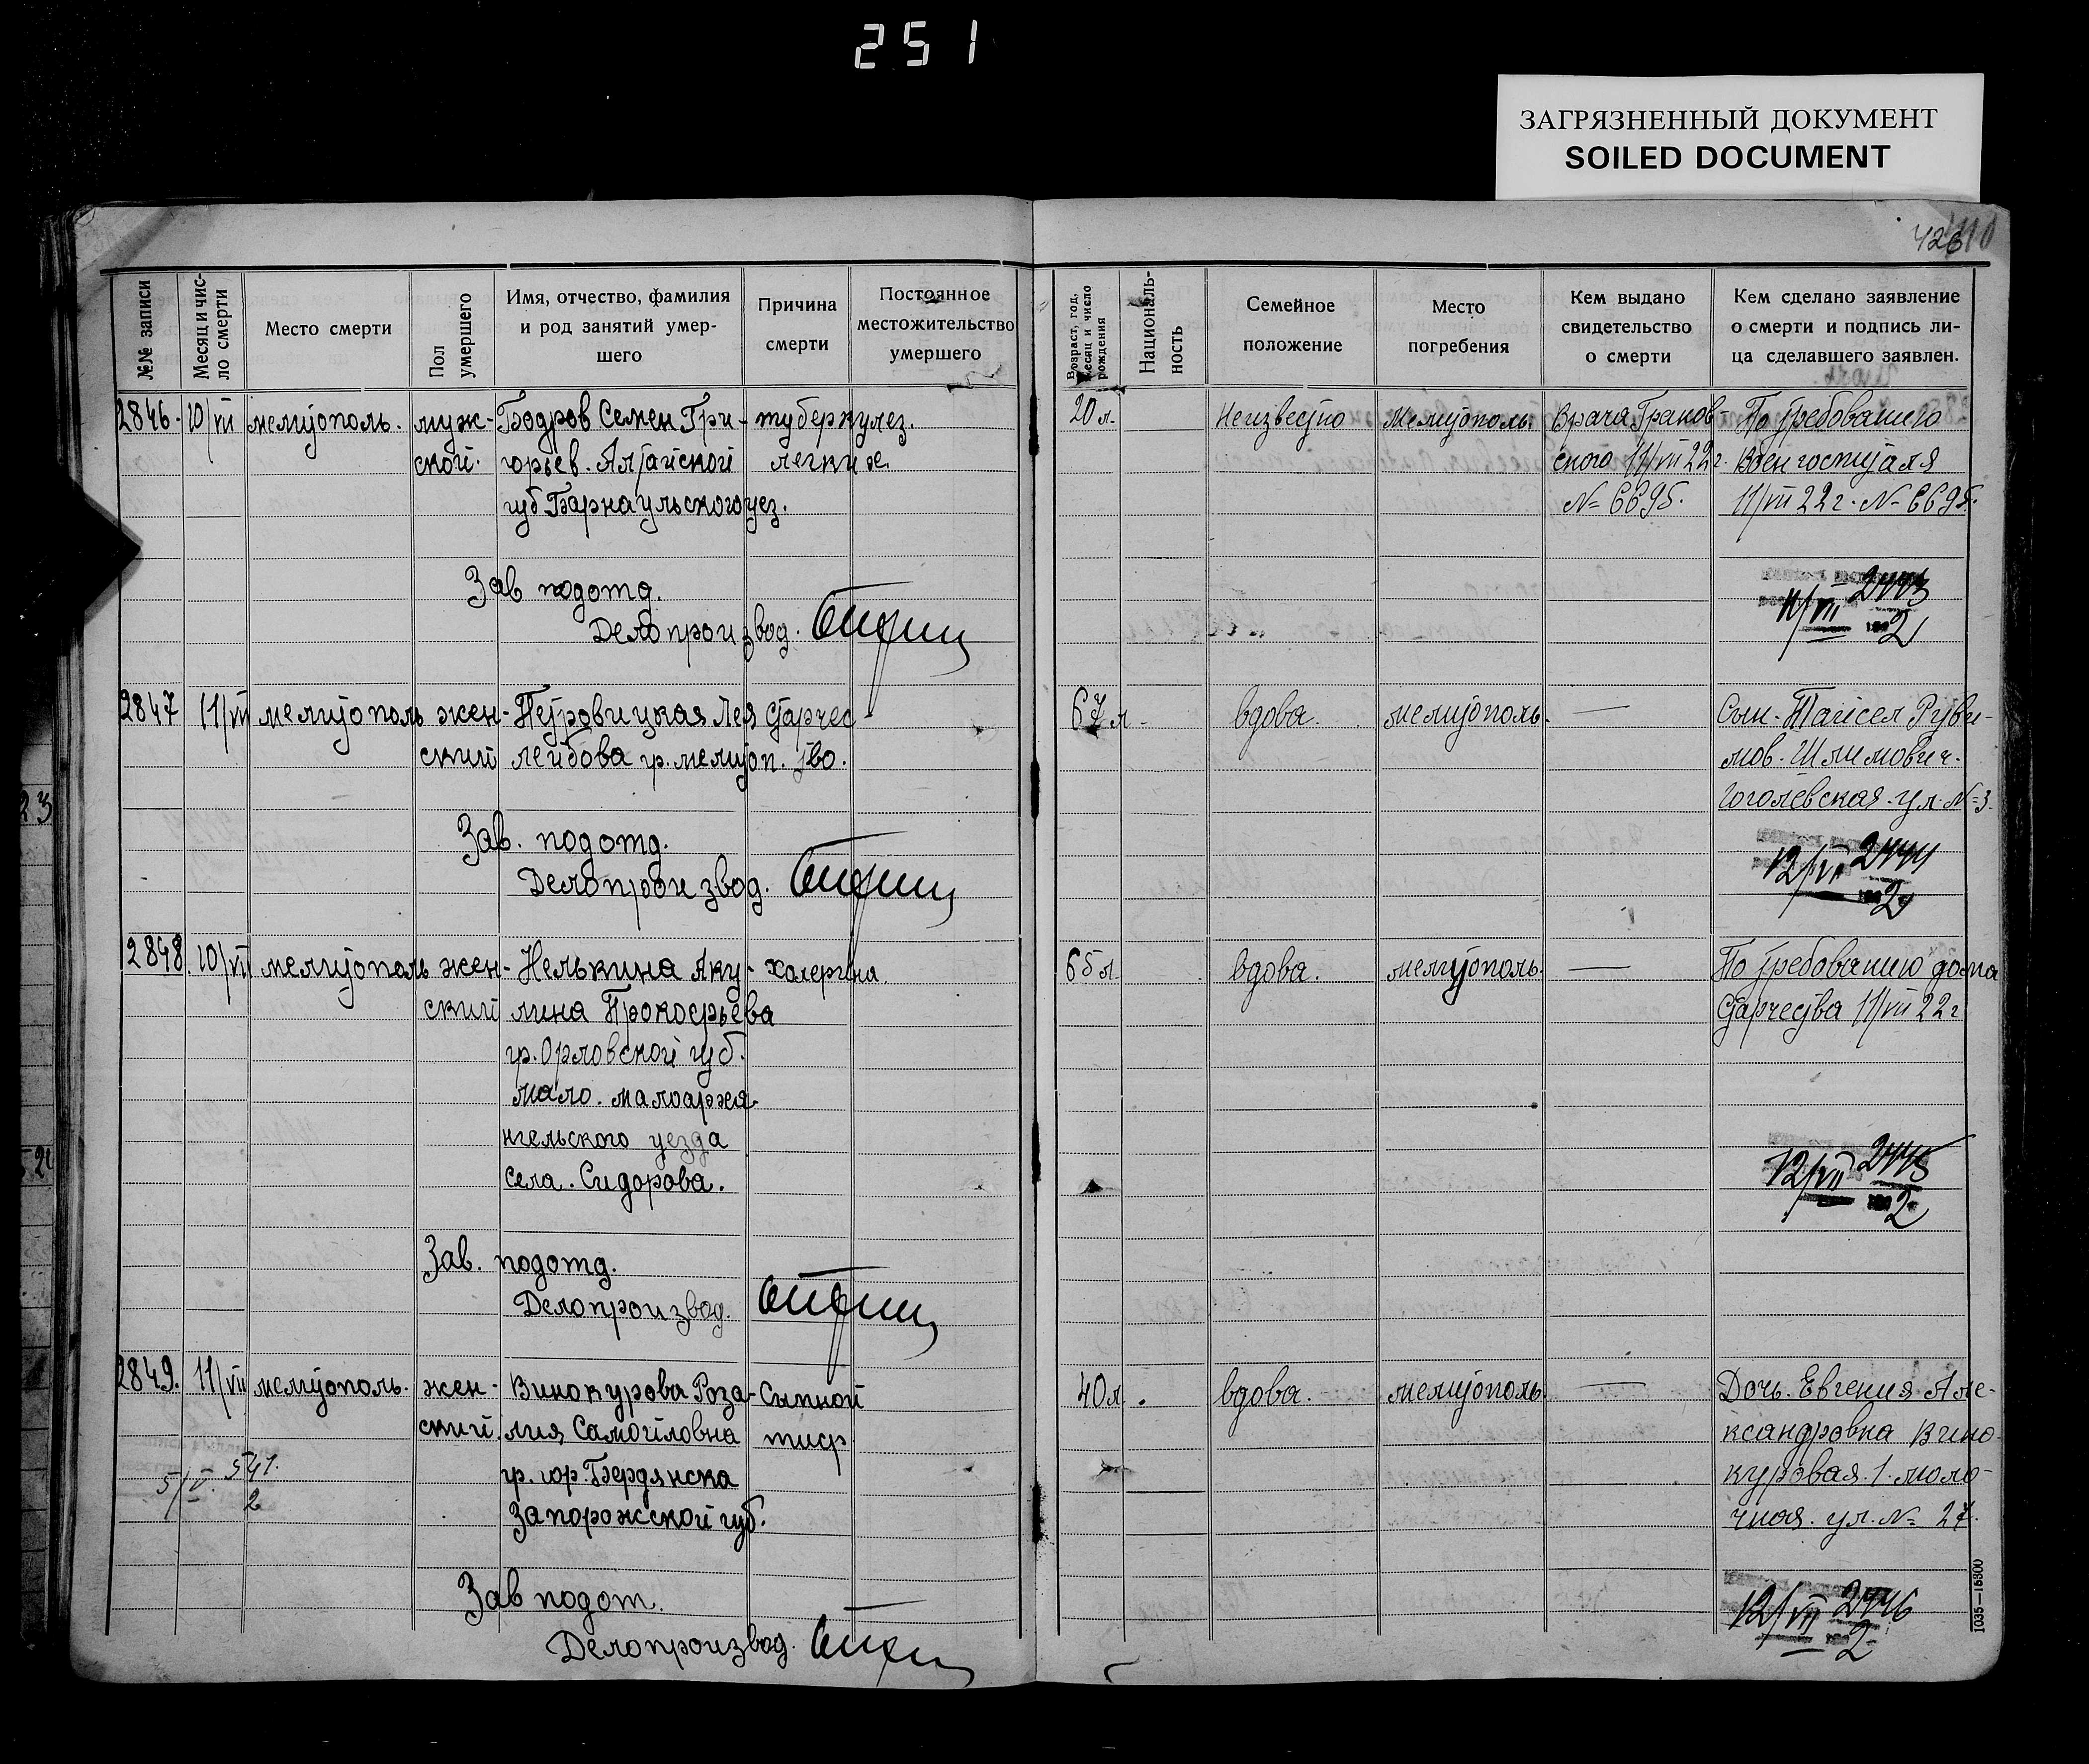 251
ЗАГРЯЗНЕННЫЙ ДОКУМЕНТ
SOILED DOCUMENT
426
№№ записи
Месяц и чис-
ло смерти
Место смерти
Пол
умершего
Имя, отчество, фамилия
и род занятий умер-
шего
Причина
смерти
Постоянное
местожительство
умершего
Возраст, год,
месяц и число
рождения
Националь-
ность
Семейное
положение
Место
погребения
Кем выдано
свидетельство
о смерти
Кем сделано заявление
о смерти и подпись ли-
ца сделавшего заявлен.
2846. 10/VII Мелитополь. муж- Бодров Семен Гри- туберкулез. 20 л. Неизвестно Мелитополь. Врача Гранов- По требованию
ской. горьев. Алтайской легких. ского 11/VII 22 г. Воен госпиталя
губ Барнаульского уез. № 6695. 11/VII 22 г. № 6695.
Зав подотд.
Делопроизвод.
11/VII 2443
2
2847 11/VII мелитополь жен- Петровицкая Лея Старчес- 67 л. вдова. мелитополь. — Сын. Тайсел Руви-
ский лейбова гр. мелитоп. тво. мов. Шлимович.
Гоголевская. ул. № 3.
Зав. подотд.
Делопроизвод.
12/VII 2444
2
2848 10/VII мелитополь жен- Нелькина Аку- холерина. 65 л. вдова. мелитополь. — По требованию дома
ский лина Прокофьева Старчества 11/VII 22 г
гр. Орловской губ.
мало. малоарха-
нгельского уезда
села. Сидорова.
12/VII 2445
2
Зав. подотд.
Делопроизвод.
2849. 11/VII мелитополь. жен- Винокурова Роза- Сыпной 40 л. вдова. мелитополь. — Дочь. Евгения Але-
ский. лия Самойловна тиф ксандровна Вино-
5/V. 541. гр. гор. Бердянска куровая. 1. моло-
2 Запорожской губ. чная. ул. № 27.
Зав подот.
Делопроизвод.
12/VII 2446
2
1035—16800